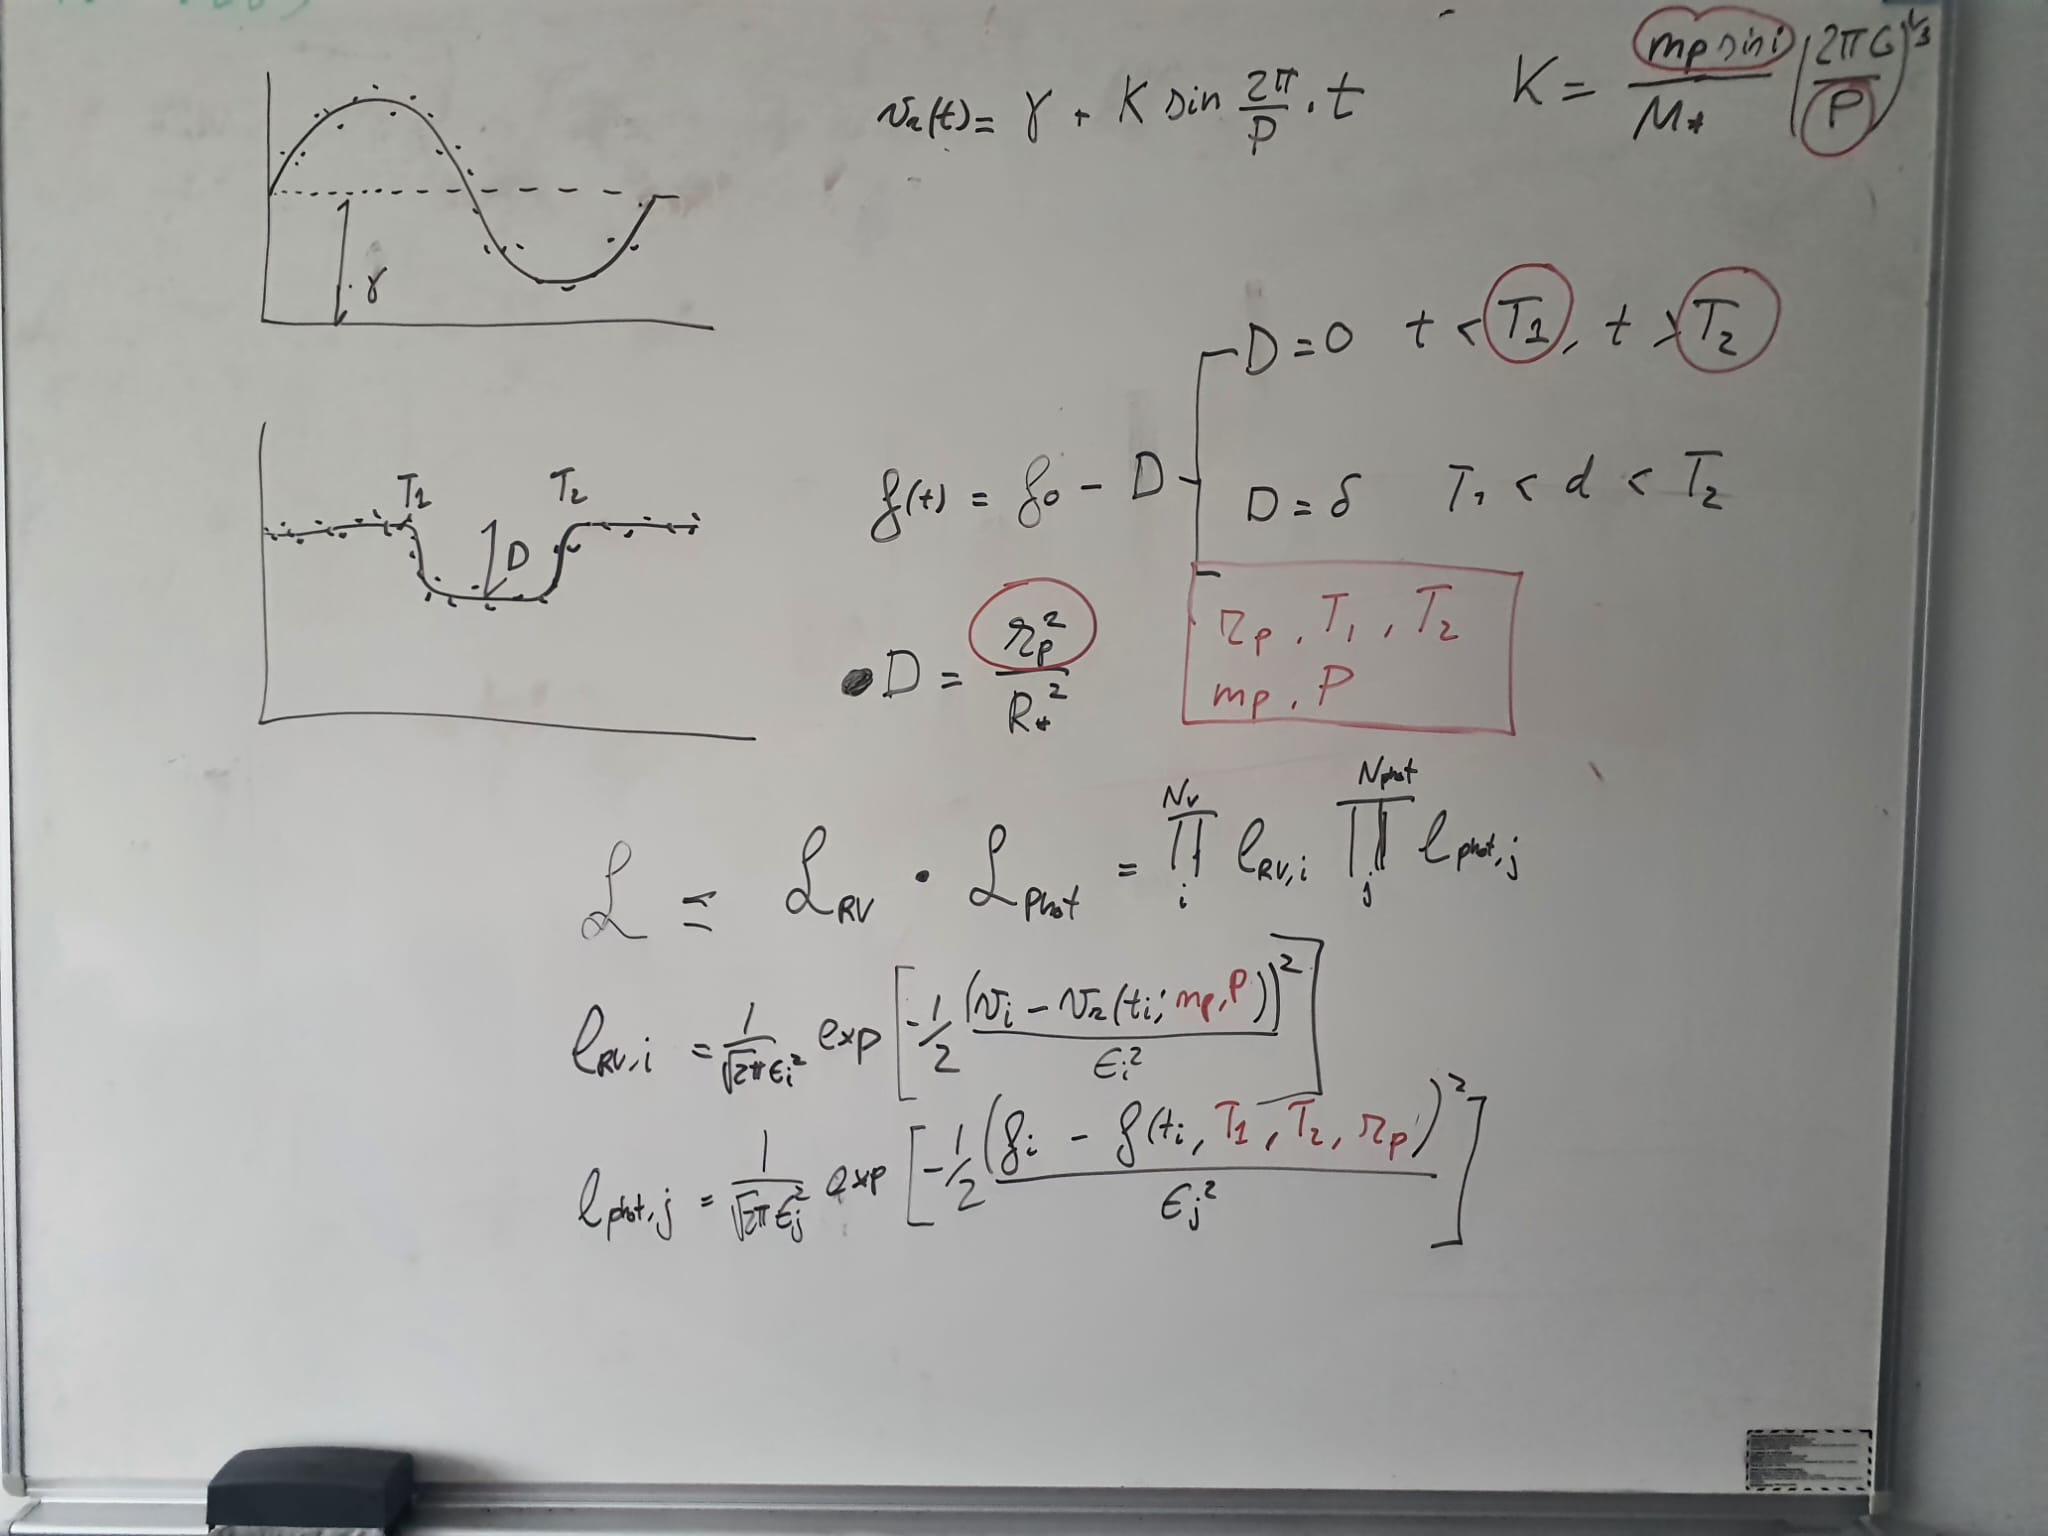 v_r(t) = γ + K sin 2π/P · t
K = m_p sin i / M_* (2πG / P)^1/3
γ
D = 0 t < T_1, t > T_2
f(t) = f_0 - D
D = δ T_1 < d < T_2
T_1 T_2
D
D = r_p^2 / R_*^2
r_p, T_1, T_2
m_p, P
ℒ = ℒ_RV · ℒ_phot = ∏_i^{N_v} ℓ_RV,i ∏_j^{N_phot} ℓ_phot,j
ℓ_RV,i = 1/√2πϵ_i^2 exp [-1/2 (v_i - v_r(t_i; m_p, P))^2 / ϵ_i^2]
ℓ_phot,j = 1/√2πϵ_j^2 exp [-1/2 (f_i - f(t_i, T_1, T_2, r_p))^2 / ϵ_j^2]